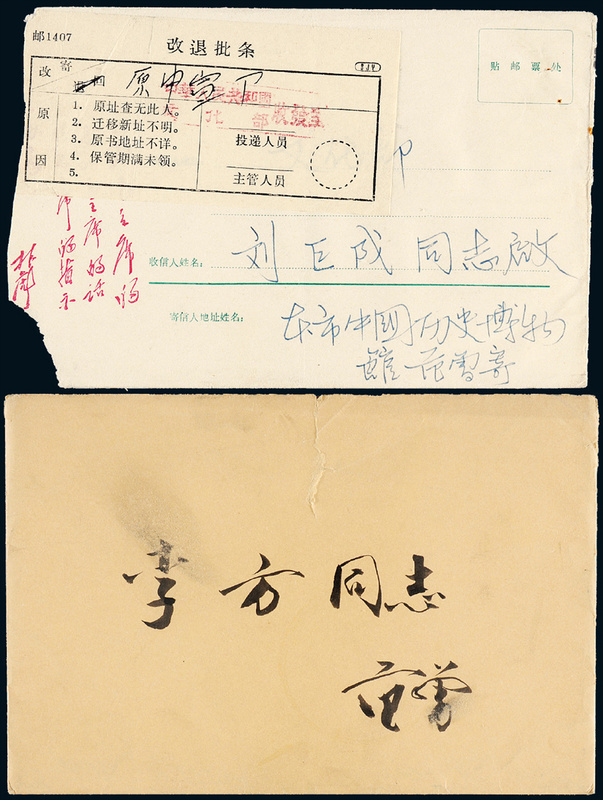 邮1407
改退批条
贴邮票处
改寄
退回
原因
1. 原址查无此人。
2. 迁移新址不明。
3. 原书地址不详。
4. 保管期满未领。
5.
投递人员
主管人员
收信人姓名：
刘巨成同志启
寄信人地址姓名：
本市中国历史博物
馆范曾寄
李方同志
范曾